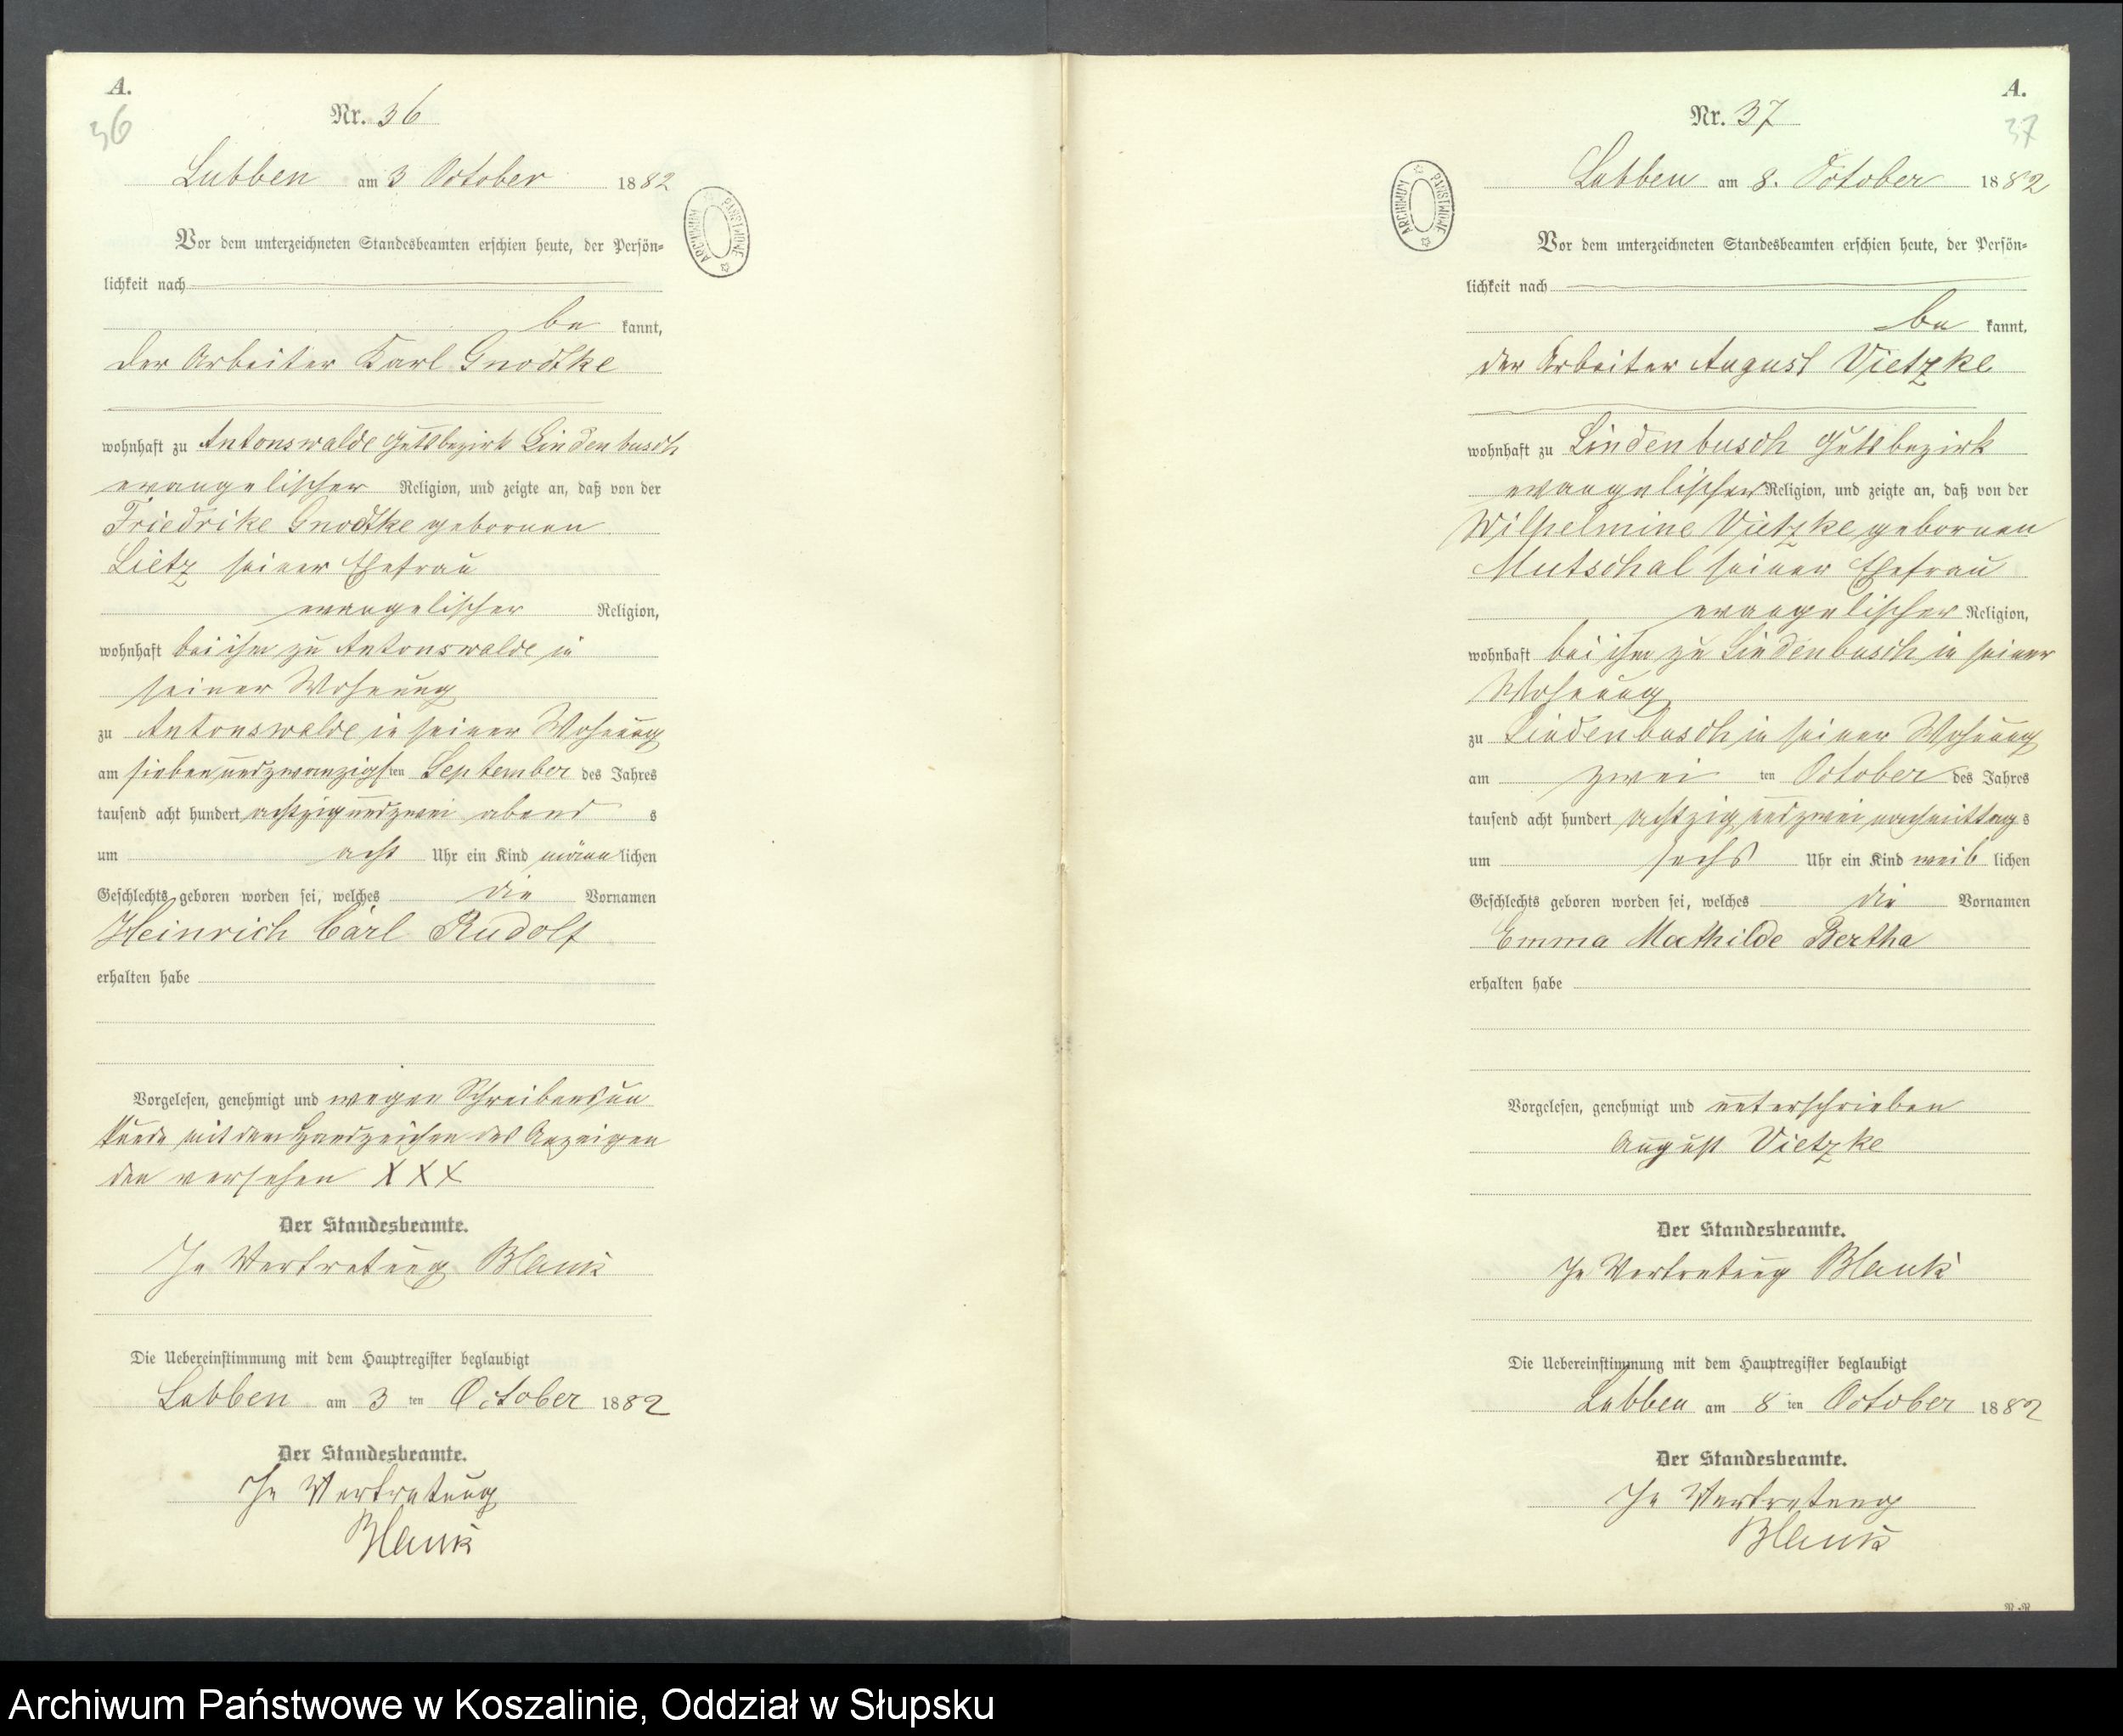 A.
36
Nr. 36
Lubben am 3 October 1882
ARCHIWUM PAŃSTWOWE
Vor dem unterzeichneten Standesbeamten erschien heute, der Persön-
lichkeit nach
be kannt,
der Arbeiter Karl Gnodtke
wohnhaft zu Antonswalde Gutsbezirk Lindenbusch
evangelischer Religion, und zeigte an, daß von der
Friedrike Gnodtke gebornen
Lietz seiner Ehefrau
evangelischer Religion,
wohnhaft bei ihm zu Antonswalde in
seiner Wohnung
zu Antonswalde in seiner Wohnung
am siebenundzwanzigsten September des Jahres
tausend acht hundert achtzig und zwei abend s
um acht Uhr ein Kind männlichen
Geschlechts geboren worden sei, welches die Vornamen
Heinrich Carl Rudolf
erhalten habe
Vorgelesen, genehmigt und wegen Schreibensun
kunde mit dem Handzeichen des Anzeigen
den versehen XXX
Der Standesbeamte.
In Vertretung Blank
Die Uebereinstimmung mit dem Hauptregister beglaubigt
Lubben am 3 ten October 1882
Der Standesbeamte.
In Vertretung
Blank
A.
37
Nr. 37
Lubben am 8. October 1882
ARCHIWUM PAŃSTWOWE
Vor dem unterzeichneten Standesbeamten erschien heute, der Persön-
lichkeit nach
be kannt,
der Arbeiter August Vietzke
wohnhaft zu Lindenbusch Gutsbezirk
evangelischer Religion, und zeigte an, daß von der
Wilhelmine Vietzke gebornen
Mutschal seiner Ehefrau
evangelischer Religion,
wohnhaft bei ihm zu Lindenbusch in seiner
Wohnung
zu Lindenbusch in seiner Wohnung
am zwei ten October des Jahres
tausend acht hundert achtzig und zwei nachmittag s
um sechs Uhr ein Kind weib lichen
Geschlechts geboren worden sei, welches die Vornamen
Emma Mathilde Bertha
erhalten habe
Vorgelesen, genehmigt und unterschrieben
August Vietzke
Der Standesbeamte.
In Vertretung Blank
Die Uebereinstimmung mit dem Hauptregister beglaubigt
Lubben am 8 ten October 1882
Der Standesbeamte.
In Vertretung
Blank
Archiwum Państwowe w Koszalinie, Oddział w Słupsku